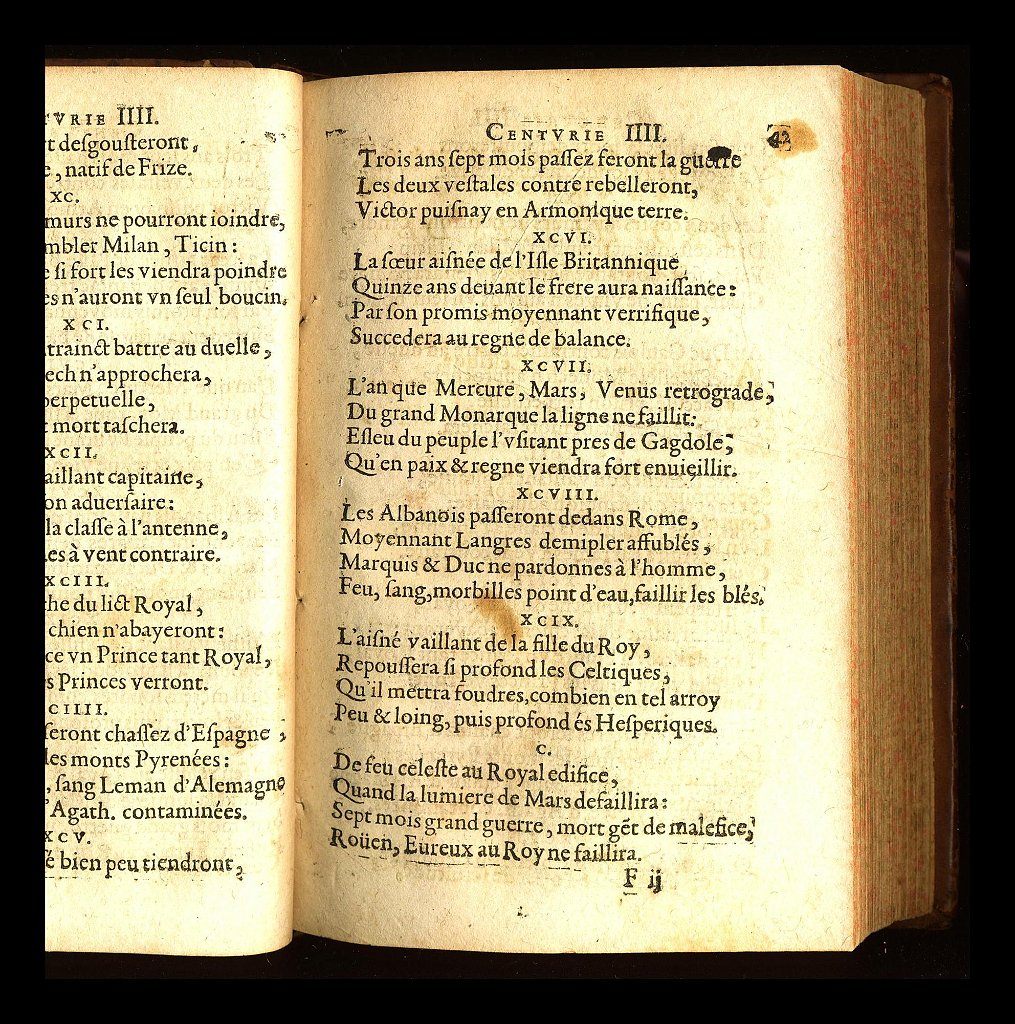 TVRIE IIII.
t deſgouſteront,
e, natif de Frize.
XC.
murs ne pourront ioindre,
mbler Milan, Ticin:
e ſi fort les viendra poindre
es n'auront vn ſeul boucin,
XCI.
trainct battre au duelle,
ech n'approchera,
perpetuelle,
t mort taſchera.
XCII.
aillant capitaine,
on aduerſaire:
la claſſe à l'antenne,
les à vent contraire.
XCIII.
che du lict Royal,
chien n'abayeront:
ce vn Prince tant Royal,
s Princes verront.
CIIII.
ſeront chaſſez d'Eſpagne;
les monts Pyrenées:
, ſang Leman d'Alemagne
'Agath. contaminées.
XCV.
é bien peu tiendront,
CENTVRIE IIII. 42
Trois ans ſept mois paſſez feront la guerre
Les deux veſtales contre rebelleront,
Victor puiſnay en Armonique terre.
XCVI.
La ſœur aiſnée de l'Iſle Britannique
Quinze ans deuant le frere aura naiſſance:
Par ſon promis moyennant verrifique,
Succedera au regne de balance.
XCVII.
L'an que Mercure, Mars, Venus retrograde,
Du grand Monarque la ligne ne faillit:
Eſleu du peuple l'vſitant pres de Gagdole;
Qu'en paix & regne viendra fort enuieillir.
XCVIII.
Les Albanois paſſeront dedans Rome,
Moyennant Langres demipler affublés,
Marquis & Duc ne pardonnes à l'homme,
Feu, ſang, morbilles point d'eau, faillir les blés.
XCIX.
L'aiſné vaillant de la fille du Roy,
Repouſſera ſi profond les Celtiques,
Qu'il mettra foudres, combien en tel arroy
Peu & loing, puis profond és Heſperiques.
C.
De feu celeſte au Royal edifice,
Quand la lumiere de Mars defaillira:
Sept mois grand guerre, mort gẽt de malefice,
Roüen, Eureux au Roy ne faillira.
F ij